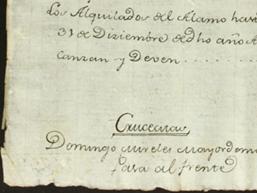 Los Alquilados del Alamo
31 de Diziembre de dho año
canzan y Deven
Domingo Mireles Mayordomo
Pasa al frente